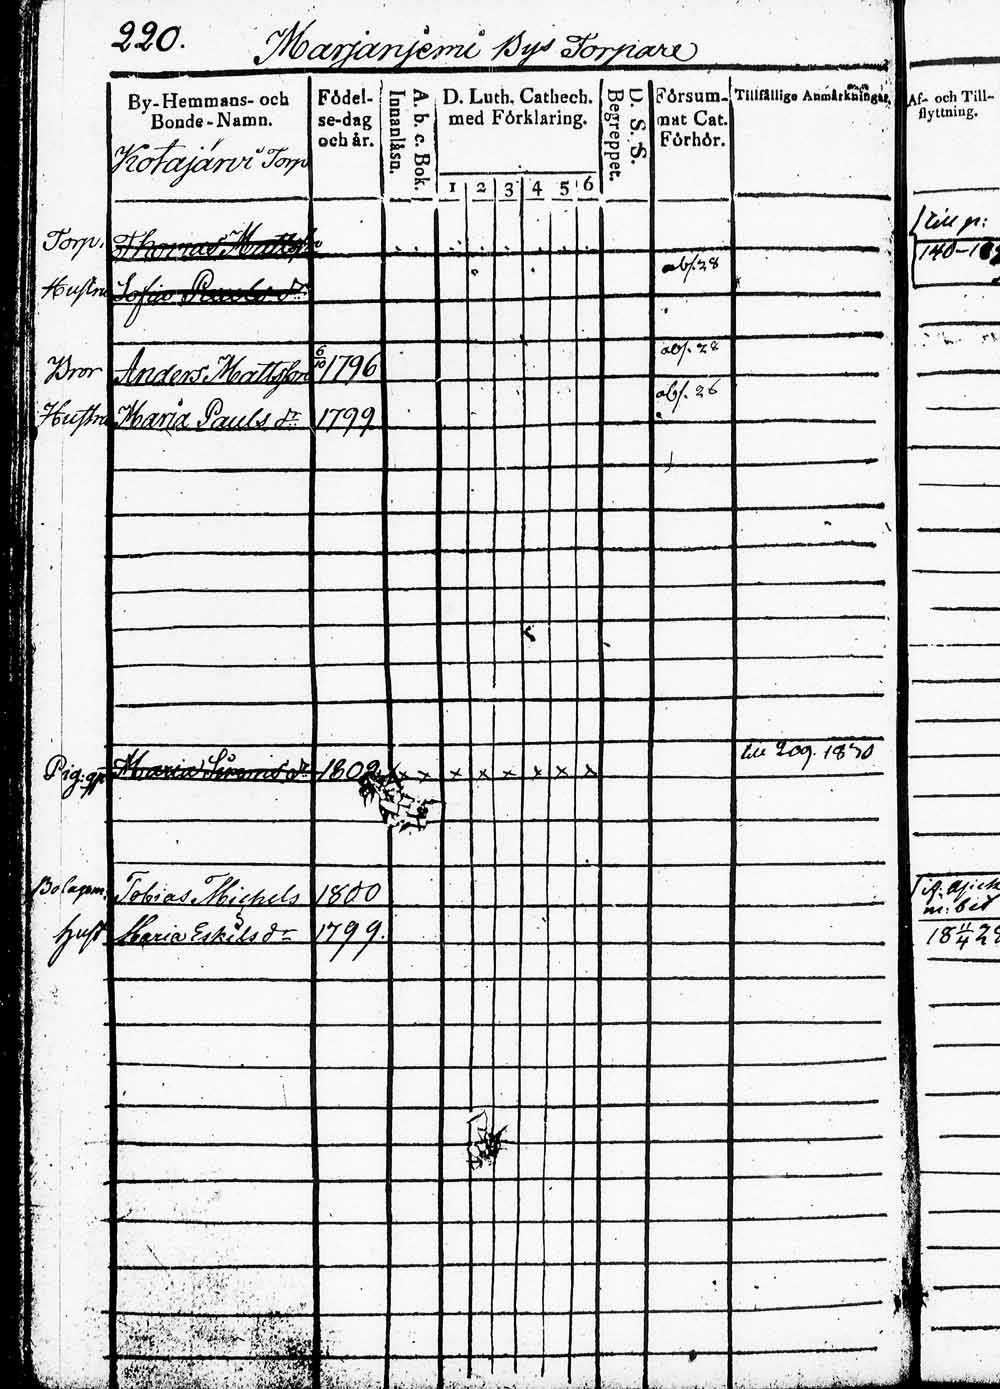 220. Marjanjemi Bys Torpare
By-Hemmans- och Bonde-Namn.
Födel-se-dag och år.
Innanläsn.
A. b. c. Bok.
D. Luth. Cathech. med Förklaring.
1 2 3 4 5 6
Begreppet.
D. S. S.
Försum-mat Cat. Förhör.
Tillfällige Anmärkningar.
Af- och Till-flyttning.
Kotajärvi Torp
Torp. Thomas Mattsson till p: 140-
Hustru Sofia Pauls dr abs. 28
Bror Anders Mattsson 6/10 1796 abs. 28
Hustru Maria Pauls dr 1799 abs. 26
Pig. Maria dr 1802 x x x x x x x x till 209. 1830
Bolagsm. Tobias Michels 1800
m: bet
Hust Maria Eskils dr 1799. 18 11/4 28